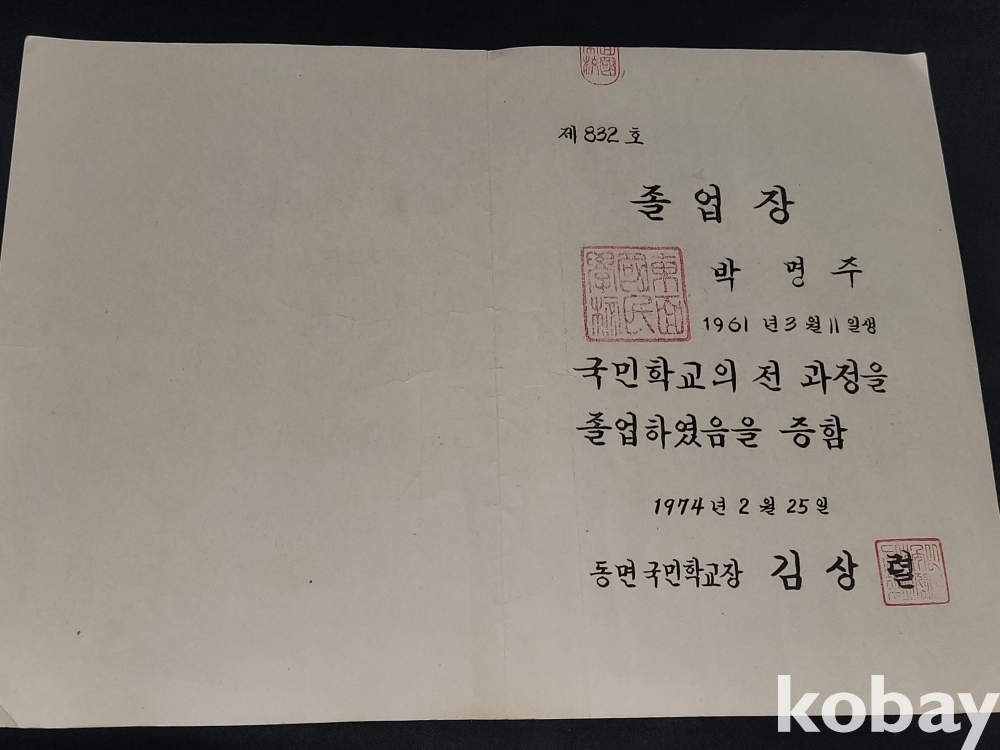 제 832 호
졸 업 장
東面
國民
學校
박 명 주
1961 년 3 월 11 일생
국민학교의 전 과정을
졸업하였음을 증함
1974 년 2 월 25 일
동면국민학교장 김 상 렬
kobay